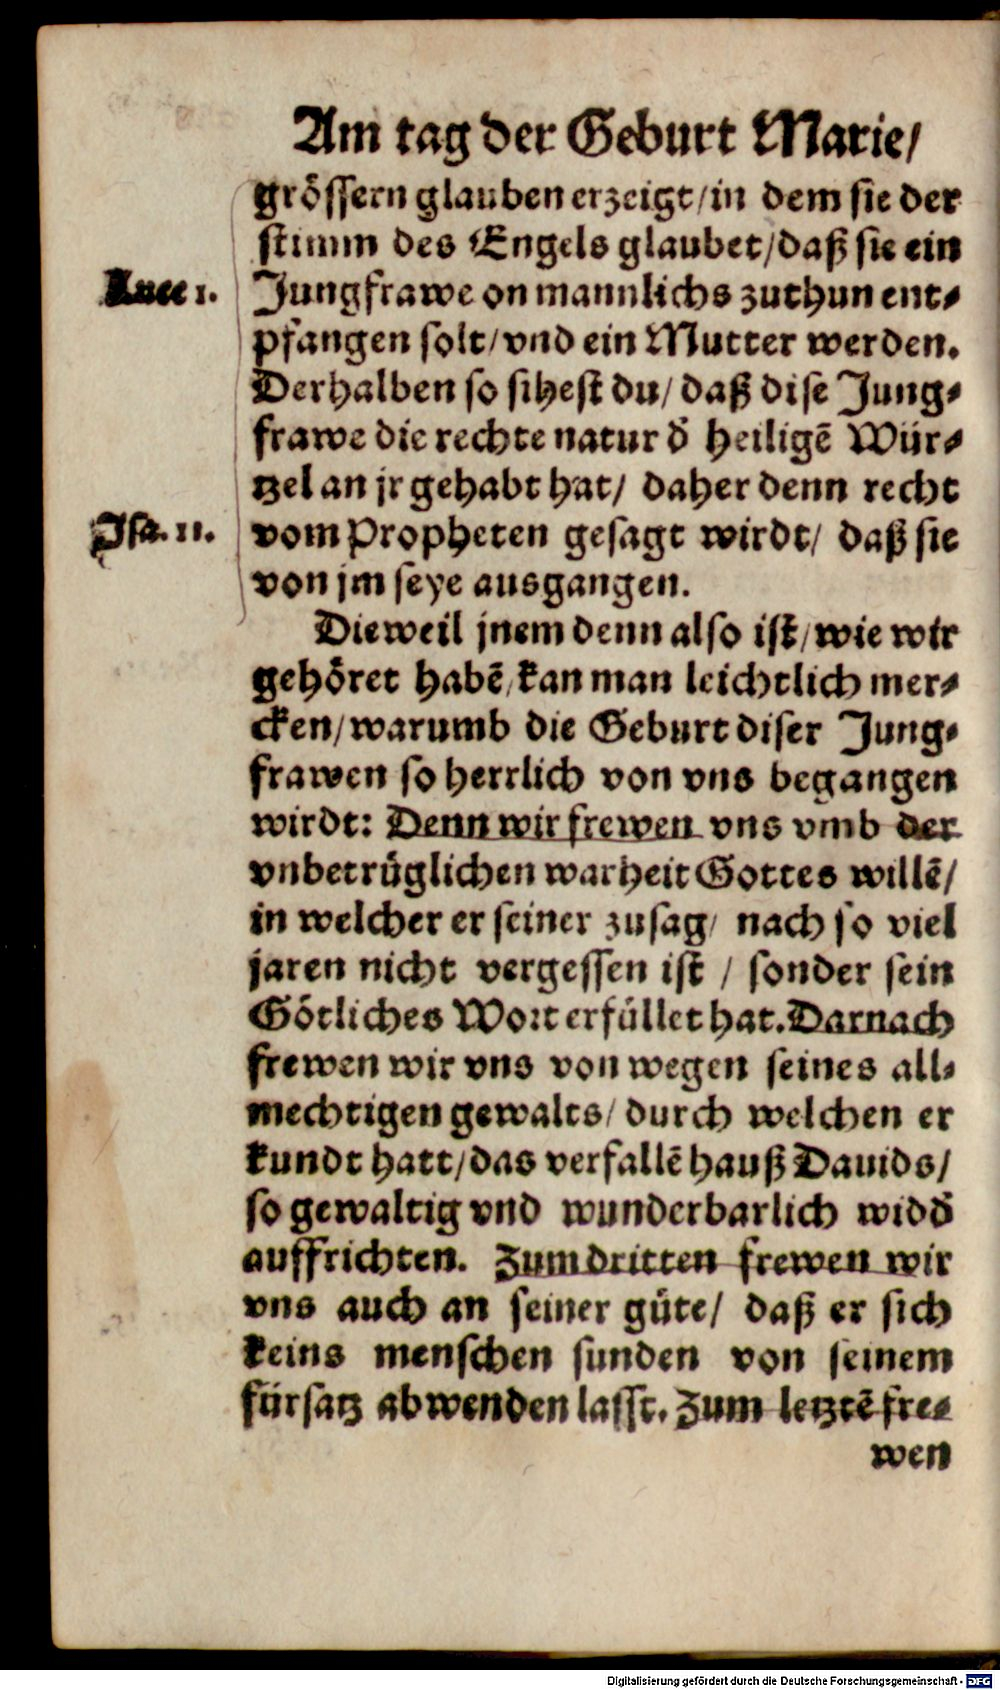 Am tag der Geburt Marie/
grössern glauben erzeigt/in dem sie der
stimm des Engels glaubet/daß sie ein
Lucę 1.
Jungfrawe on mannlichs zuthun ent⸗
pfangen solt/vnd ein Mutter werden.
Derhalben so sihest du/ daß dise Jung⸗
frawe die rechte natur d̕ heiligē Wür⸗
tzel an jr gehabt hat/ daher denn recht
Jsa. 11.
vom Propheten gesagt wirdt/ daß sie
von jm seye ausgangen.
Dieweil jnem denn also ist/wie wir
gehöret habē/kan man leichtlich mer⸗
cken/warumb die Geburt diser Jung⸗
frawen so herrlich von vns begangen
wirdt: Denn wir frewen vns vmb der
vnbetrüglichen warheit Gottes willē/
in welcher er seiner zusag/ nach so viel
jaren nicht vergessen ist / sonder sein
Götliches Wort erfüllet hat. Darnach
frewen wir vns von wegen seines all⸗
mechtigen gewalts/durch welchen er
kundt hatt/das verfallē hauß Dauids/
so gewaltig vnd wunderbarlich widd̕
auffrichten. Zum dritten frewen wir
vns auch an seiner güte/ daß er sich
keins menschen sunden von seinem
fürsatz abwenden lasst. Zum letztē fre⸗
wen
Digitalisierung gefördert durch die Deutsche Forschungsgemeinschaft - DFG